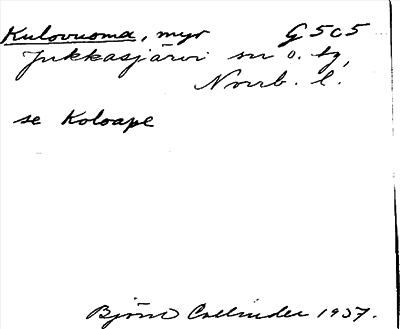 Kulovuoma, myr G5c5
Jukkasjärvi sn o. tg,
Norrb. l.
se Koloape
Björn Collinder 1937.